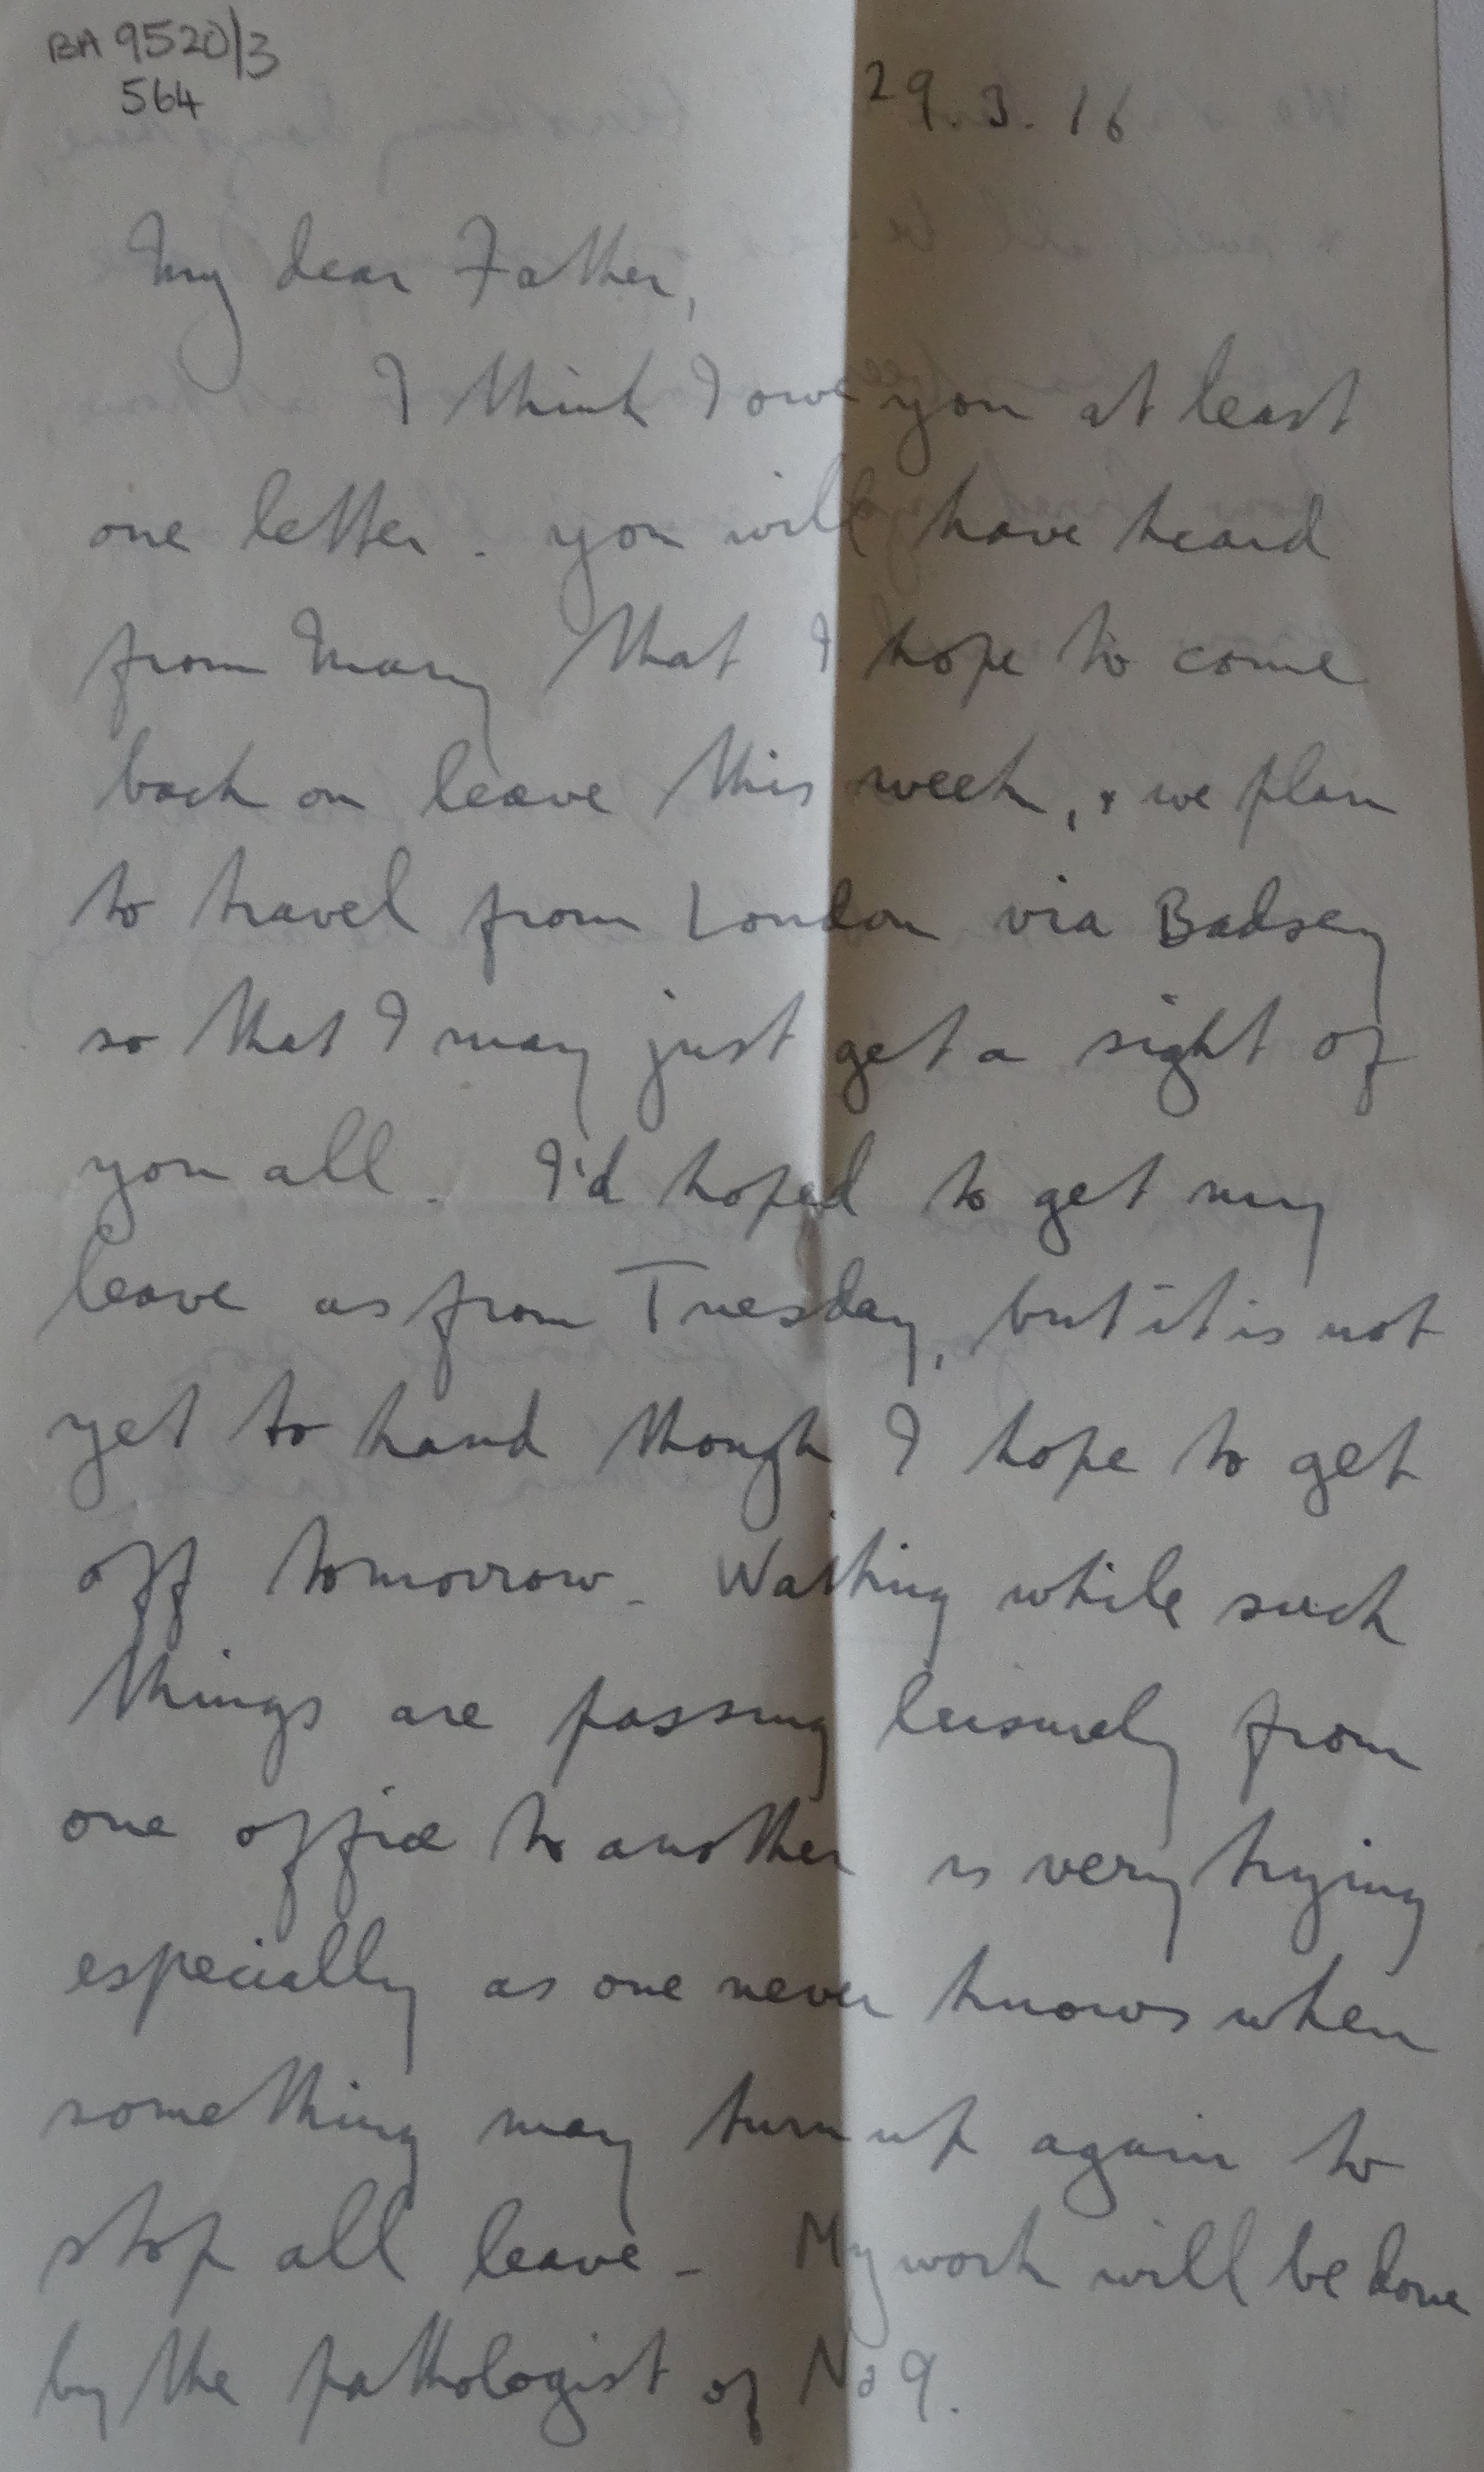 BA 9520/3
564
29.3.16
My dear Father,
I think I owe you at least
one letter. You will have heard
from Mary that I hope to come
back on leave this week, & we plan
to travel from London via Badsey
so that I may just get a sight of
you all. I'd hoped to get my
leave as from Tuesday, but it is not
yet to hand though I hope to get
off tomorrow. Waiting while such
things are passing leisurely from
one office to another is very trying
especially as one never knows when
something may turn up again to
stop all leave - My work will be done
by the pathologist of No 9.